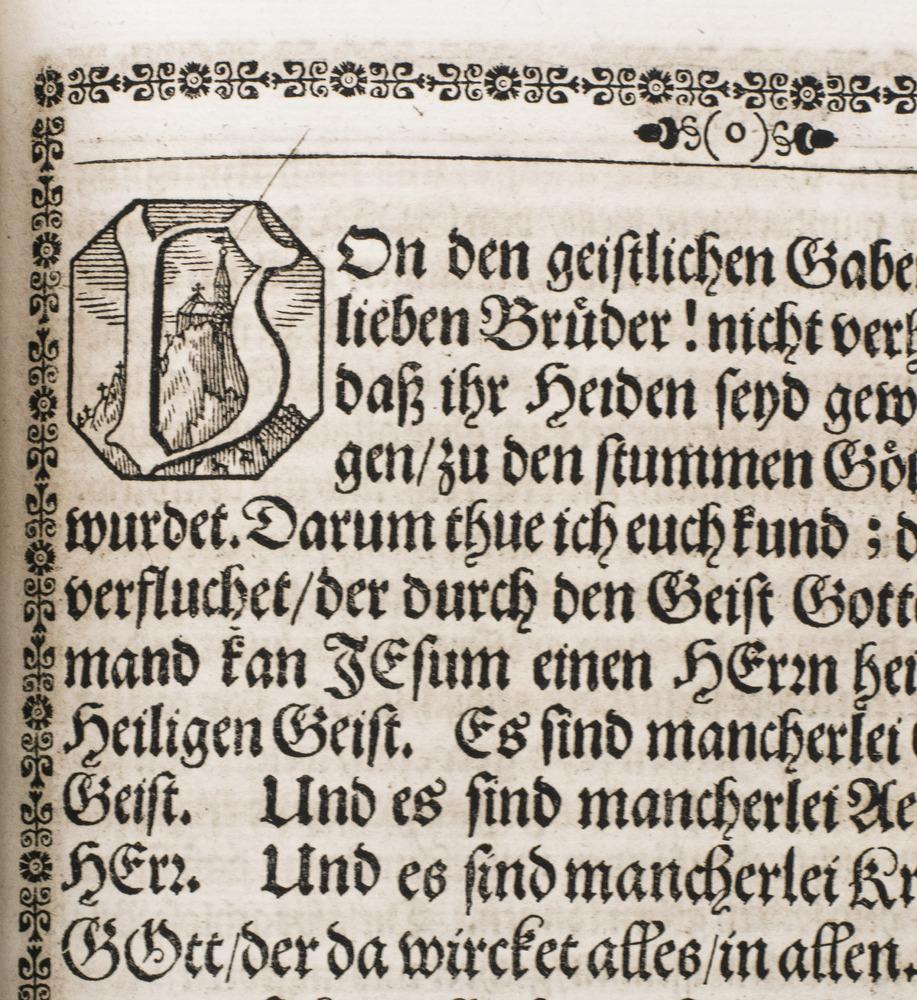 (o)
VOn den geistlichen Gabe
lieben Brüder! nicht verh
daß ihr Heiden seyd gew
gen/zu den stummen Göt
wurdet. Darum thue ich euch kund; d
verfluchet/der durch den Geist Gott
mand kan JEsum einen HErrn hei
Heiligen Geist. Es sind mancherlei
Geist. Und es sind mancherlei Ae
HErr. Und es sind mancherlei Kr
GOtt/der da wircket alles/in allen.